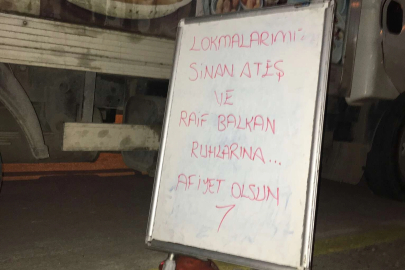 LOKMALARIMIZ
SİNAN ATEŞ
VE
RAİF BALKAN
RUHLARINA...
AFİYET OLSUN